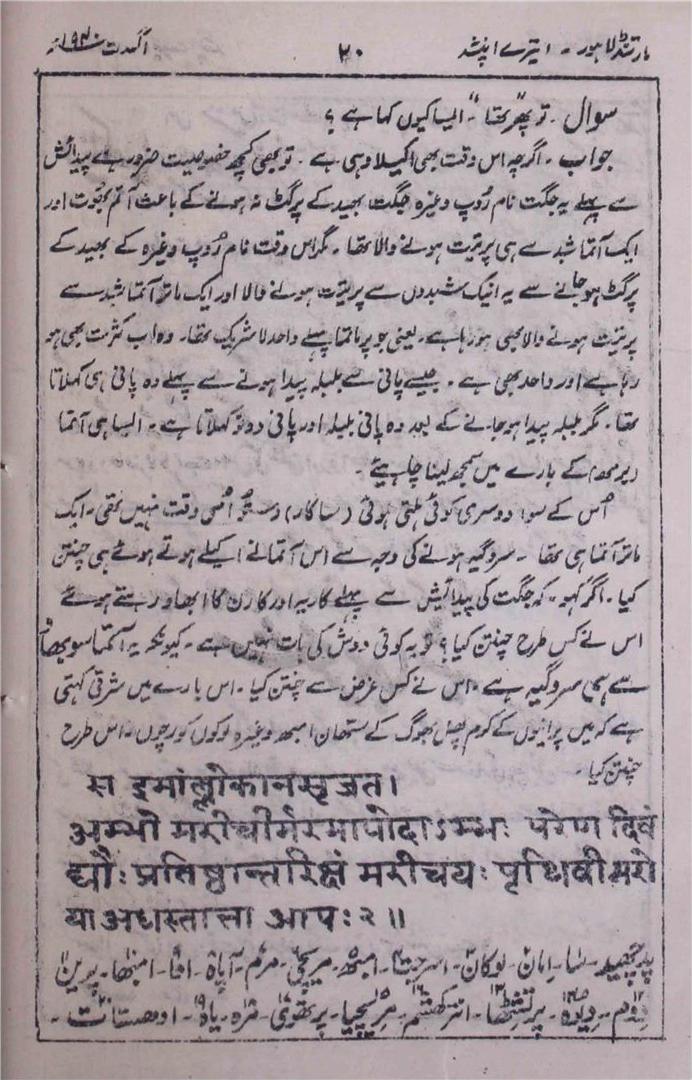 مارتنڈ لاہور ۔ ایترے اپنشد ۲۰ اگست ۱۹۴۰ء
سوال ۔ تو پھر "تھا" ۔ ایسا کیوں کہا ہے ؟
جواب ۔ اگرچہ اس وقت بھی اکیلا وہی ہے ۔ تو بھی کچھ خصوصیت ضرور ہے پیدائش
سے پہلے یہ جگت نام رُوپ وغیرہ جگت بھید کے پرگٹ نہ ہونے کے باعث آتم بھُوت اور
ایک آتما شبد سے ہی پرتیت ہونے والا تھا ۔ مگر اس وقت نام رُوپ وغیرہ کے بھید کے
پرگٹ ہو جانے سے یہ انیک شبدوں سے پرتیت ہونے والا اور ایک ماتر آتما شبد سے
پرتیت ہونے والا بھی ہو رہا ہے۔ یعنی جو پرماتما پہلے واحد لا شریک تھا۔ وہ اب کثرت بھی ہو
رہا ہے اور واحد بھی ہے ۔ جیسے پانی سے بلبلہ پیدا ہونے سے پہلے وہ پانی ہی کہلاتا
تھا ۔ مگر بلبلہ پیدا ہو جانے کے بعد وہ پانی بلبلہ اور پانی دونو کہلاتا ہے ۔ ایسا ہی آتما
دبرہم) کے بارے میں سمجھ لینا چاہیئے ۔
اُس کے سوا دوسری کوئی ہلتی ہوئی (ساکار) وستُو اُس وقت نہیں تھی ۔ ایک
ماتر آتما ہی تھا ۔ سروگیہ ہونے کی وجہ سے اس آتما نے اکیلے ہوتے ہوئے ہی چنتن
کیا ۔ اگر کہو ۔ کہ جگت کی پیدائیش سے پہلے کاریہ اور کارن کا ابھاو رہتے ہوئے
اس نے کس طرح چنتن کیا ؟ تو یہ کوئی دوش کی بات نہیں ہے ۔ کیونکہ یہ آتما سوبھاؤ
سے ہی سروگیہ ہے ۔ اس نے کس غرض سے چنتن کیا ۔ اس بارے میں شرتی کہتی
ہے کہ میں پرانیوں کے کرم پھل بھوگ کے ستھان امبھ وغیرہ لوکوں کو رچوں ۔ اس طرح
چنتن کیا ۔
स इमांल्लोकानसृजत।
अम्भो मरीचीर्मरमापोदाऽम्भः परेण दिवं
द्यौः प्रतिष्ठान्तरिक्षं मरीचयः पृथिवी मरो
या अधस्तात्ता आपः २ ॥
پد چھید ۔ سا ۔ امان ۔ لوکان ۔ اسرجت ۔ امبھ ۔ مریچی ۔ مرم ۔ آپاہ ۔ ادا ۔ امبھا ۔ پرین
دوم ۔ دیاوہ ۔ پرتشٹھا ۔ انترکھشم ۔ مریچیا ۔ پرتھوی ۔ مرہ ۔ یاہ ۔ ادھستات ۔